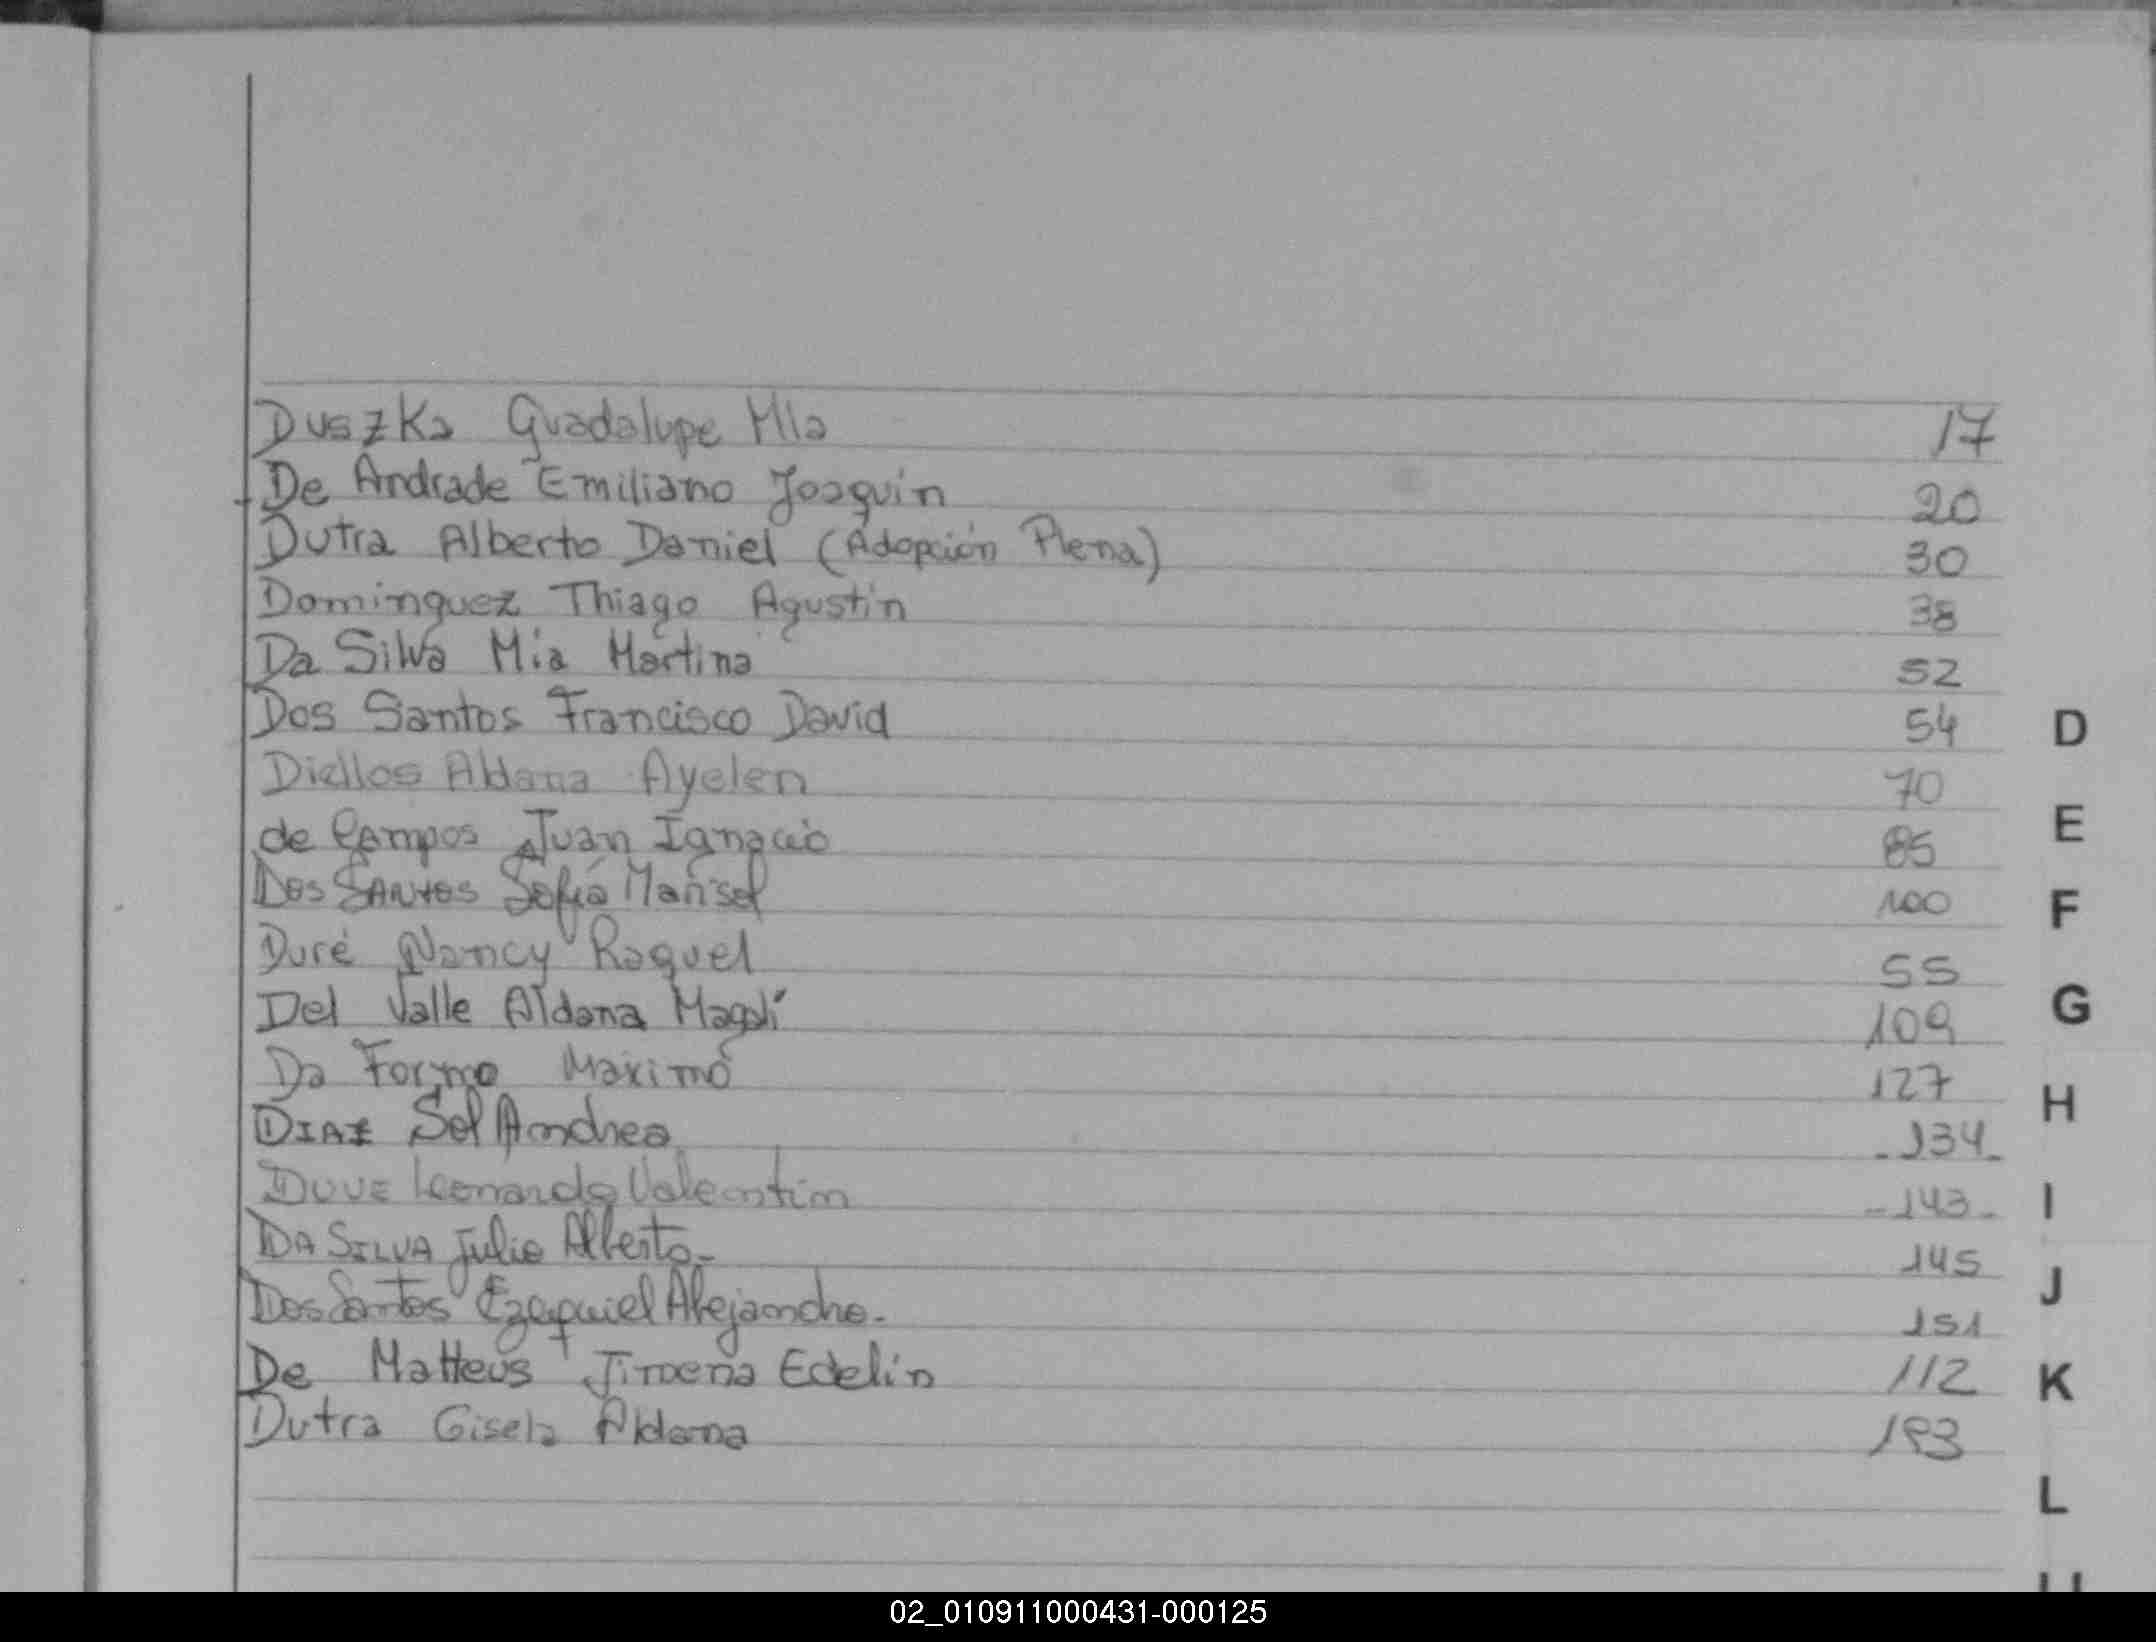 Duszka Guadalupe Mía 17
De Andrade Emiliano Joaquín 20
Dutra Alberto Daniel (Adopción Plena) 30
Dominguez Thiago Agustín 38
Da Silva Mia Martina 52
Dos Santos Francisco David 54 D
Diellos Aldana Ayelen 70
E
de Campos Juan Ignacio 85
Dos SANTOS Sofía Marisol 100 F
Duré Nancy Raquel 55
G
Del Valle Aldana Magalí 109
Da Formo Maximo 127
H
DIAZ Sol Andrea -134-
Duve Leonardo Valentin -143- I
DA SILVA Julio Alberto- 145
J
Dos Santos Ezequiel Alejandro- 151
De Matteus Jimena Edelin 112 K
Dutra Gisela Aldana
L
02_010911000431-000125